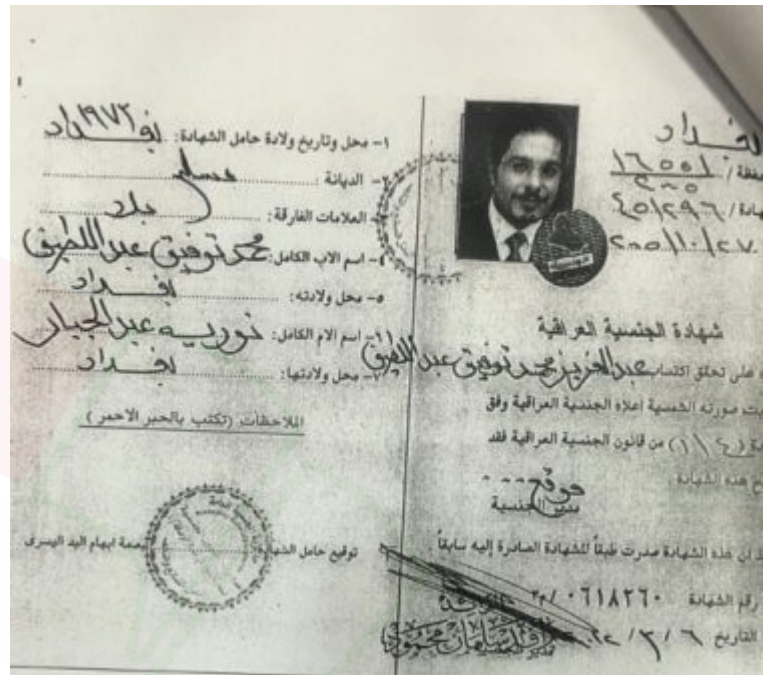 بغداد
محفظة / ١٦٥٥١
٢٠٠٥
شهادة / ٤٥١٢٩٦
٢٠٠٥/١٠/٢٧
شهادة الجنسية العراقية
على تحقق اكتساب عبد العزيز محمد توفيق عبد اللطيف
صورته الشمسية اعلاه الجنسية العراقية وفق
(٤/١) من قانون الجنسية العراقية فقد
هذه الشهادة
موقع
مدير الجنسية
ان هذه الشهادة صدرت طبقاً للشهادة الصادرة إليه سابقاً
رقم الشهادة ٠٦١٨٢٦٠ /م٣
التاريخ ٦ / ٣ /
مدير الجنسية
١- محل وتاريخ ولادة حامل الشهادة: بغداد ١٩٧٢
٢- الديانة : مسلم
٣- العلامات الفارقة :
٤- اسم الاب الكامل: محمد توفيق عبد اللطيف
٥- محل ولادته: بغداد
٦- اسم الام الكامل: نورية عبد الجبار
٧- محل ولادتها: بغداد
الملاحظات (تكتب بالحبر الاحمر)
توقيع حامل الشهادة
بصمة ابهام اليد اليسرى